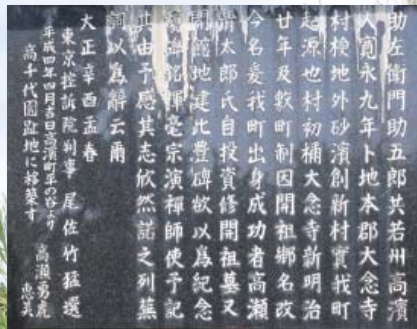 助左衛門助五郎共若州高濱
人寛永九年卜地本郡大念寺
村検地外砂濱創新村實我町
起源也村初稱大念寺新明治
廿年及敷町制因開祖郷名改
今名爰我町出身成功者高瀬
清太郎氏自投資修開祖墓又
開地建此豊碑欲以爲紀念
揮毫宗演禪師使予記
其由予感其志欣然諾之列蕪
詞以爲辭云爾
大正辛酉孟春
東京控訴院判事 尾佐竹猛選
平成四年四月吉日高濱町平の谷より
高千代園跡地に移築す
高瀬勇
恵美